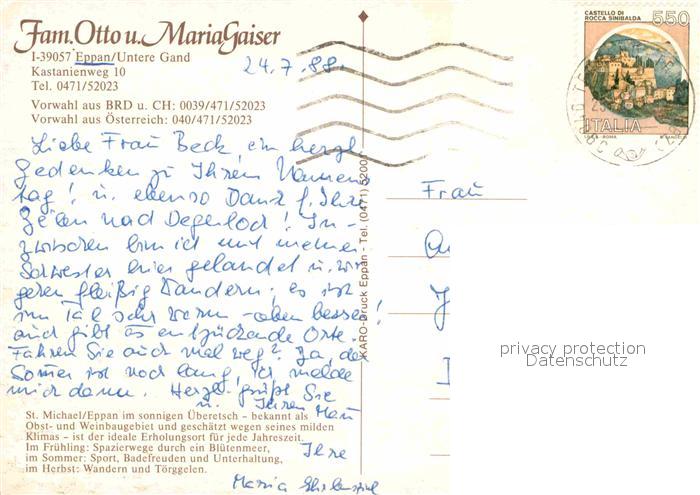 Fam. Otto u. Maria Gaiser
I-39057 Eppan/Untere Gand
Kastanienweg 10
Tel. 0471/52023
Vorwahl aus BRD u. CH: 0039/471/52023
Vorwahl aus Österreich: 040/471/52023
24.7.88.
Liebe Frau Beck, ein herzl.
Gedenken zu Ihrem Namens
tag! u. ebenso Dank f. Ihre
Zeilen nach Degerloch! In-
zwischen bin ich mit meiner
Schwester hier gelandet u. wir
gehen fleißig Wandern; es ist
im Tal sehr warm - oben besser!
auch gibt es entzückende Orte.
Fahren Sie auch mal weg? Ja, der
Sommer ist noch lang, ich melde
mich dann. Herzl. grüßt Sie
u. Ihren Mann
Ihre
Maria
St. Michael/Eppan im sonnigen Überetsch - bekannt als
Obst- und Weinbaugebiet und geschätzt wegen seines milden
Klimas - ist der ideale Erholungsort für jede Jahreszeit.
Im Frühling: Spazierwege durch ein Blütenmeer,
im Sommer: Sport, Badefreuden und Unterhaltung,
im Herbst: Wandern und Törggelen.
KARO-Druck Eppan - Tel. (0471) 5200
CASTELLO DI
ROCCA SINIBALDA
550
ITALIA
Frau
privacy protection
Datenschutz